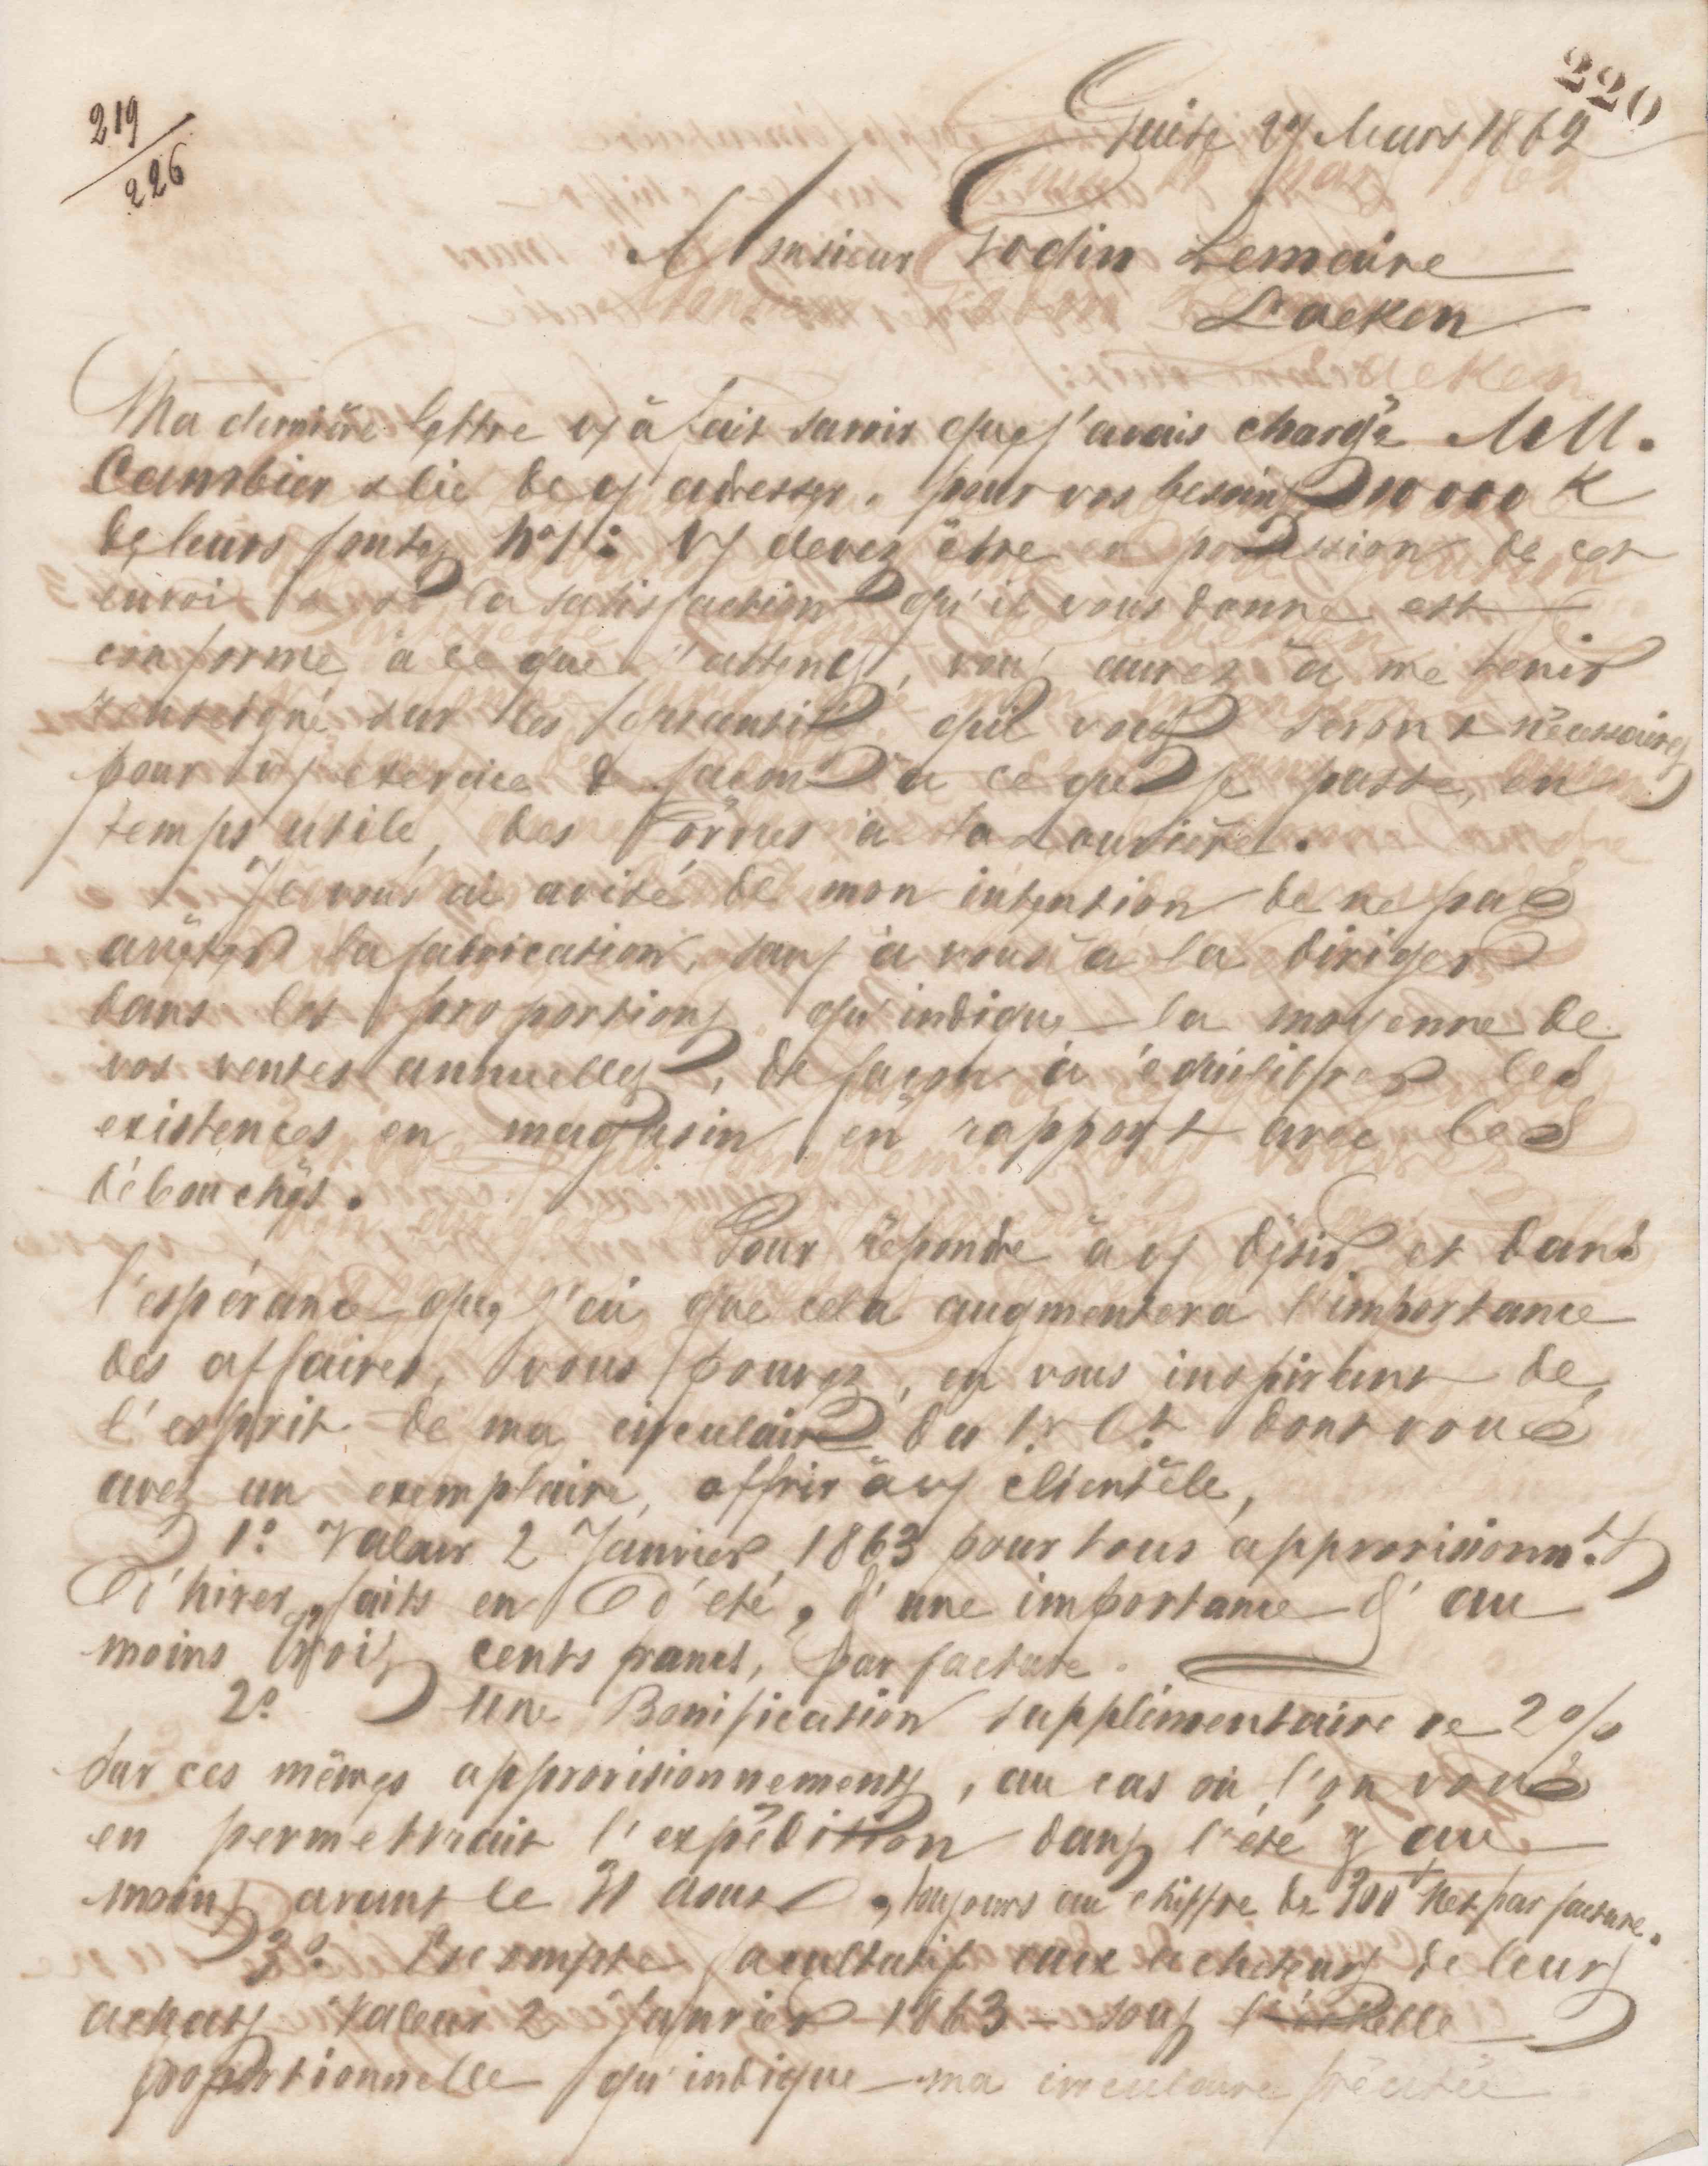 220
219
226
Guise 27 Mars 1862
Monsieur Godin Lemaire
Laeken
Ma dernière lettre vs à fait savoir que j'avais chargé MM.
Cambier & Cie de vs adresser, pour vos besoins 10000 K
de leurs fontes No 1: Vs devez être en possession de cet
envoi si la satisfaction qu'il vous donne est
conforme à ce que j'attends, vous aurez à me tenir
renseigné sur les quantités qui vous seront nécessaires
pour vs exercice de façon à ce que je passe, en
temps utile, des ordres à la Louvière.
Je vous ai avisé de mon intention de ne pas
arrêter la fabrication, sauf à vous à la diriger
dans les proportions qu'indique la moyenne de
vos ventes annuelles, de façon à équilibrer les
existences en magasin en rapport avec les
débouchés.
Pour répondre à vs désir et dans
l'espérance que j'ai que cela augmentera l'importance
des affaires, vous pouvez, en vous inspirant de
l'esprit de ma circulaire du 1r Ct dont vous
avez un exemplaire, offrir à vs clientèle,
1o Valeur 2 Janvier 1863 pour tous approvisionnts
d'hiver, faits en d'été, d'une importance d'au
moins trois cents francs, par facture.
2o Une Bonification supplémentaire de 2%
sur ces mêmes approvisionnements, au cas où l'on vous
en permettrait l'expédition dans l'été, au
moins avant le 31 août, toujours au chiffre de 300 f net par facture.
3o Escompte facultatif aux acheteurs de leurs
achats Valeur 2 Janvier 1863 - sous l'échelle
proportionnelle qu'indique ma circulaire précitée